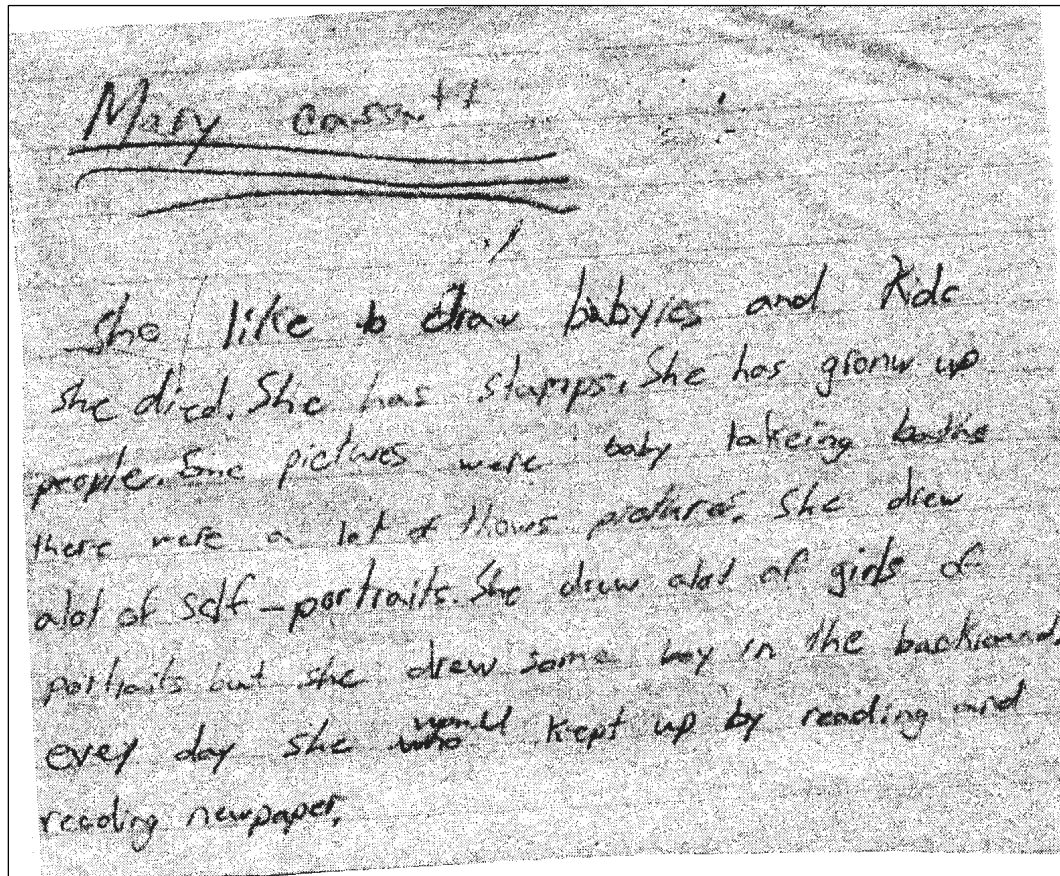 Mary cassatt
She like to draw babyies and Kids
she died. She has stamps. She has gronw up
people. Some pictures were baby takeing baths
there were a lot of thows pictures. She drew
alot of self-portraits. She draw alot of girls of
portraits but she drew some boy in the backround.
evey day she would kept up by reading and
reading newpaper.